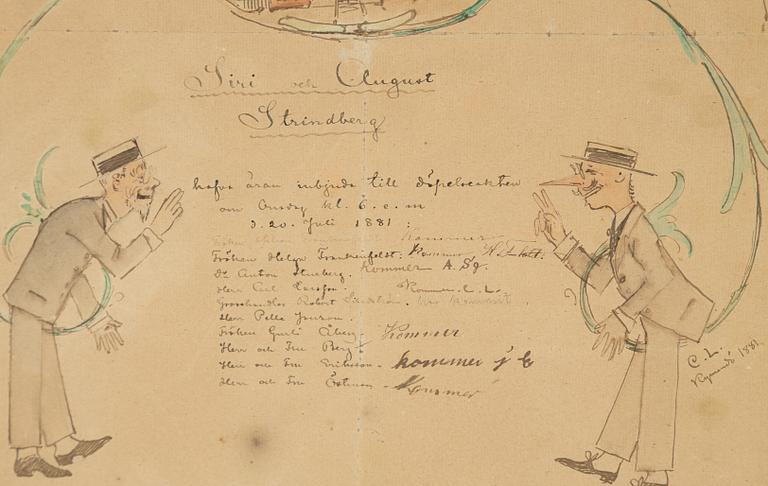 Siri och August
Strindberg
hafva äran inbjuda till döpelseakten
om Onsdag kl. 6. e. m
d. 20. Juli 1881 :
Fröken Kommer
Fröken Helga Frankenfeldt. Kommer
Dr Anton Stuxberg. Kommer A. Sg.
Herr Carl Larsson. Kommer. C. L.
Grosshandlar Robert
Herr Pelle Janson.
Fröken Gurli Åberg Kommer
Herr och Fru Berg
Herr och Fru Eriksson - kommer
Herr och Fru Östman - Kommer
C. L.
1881.